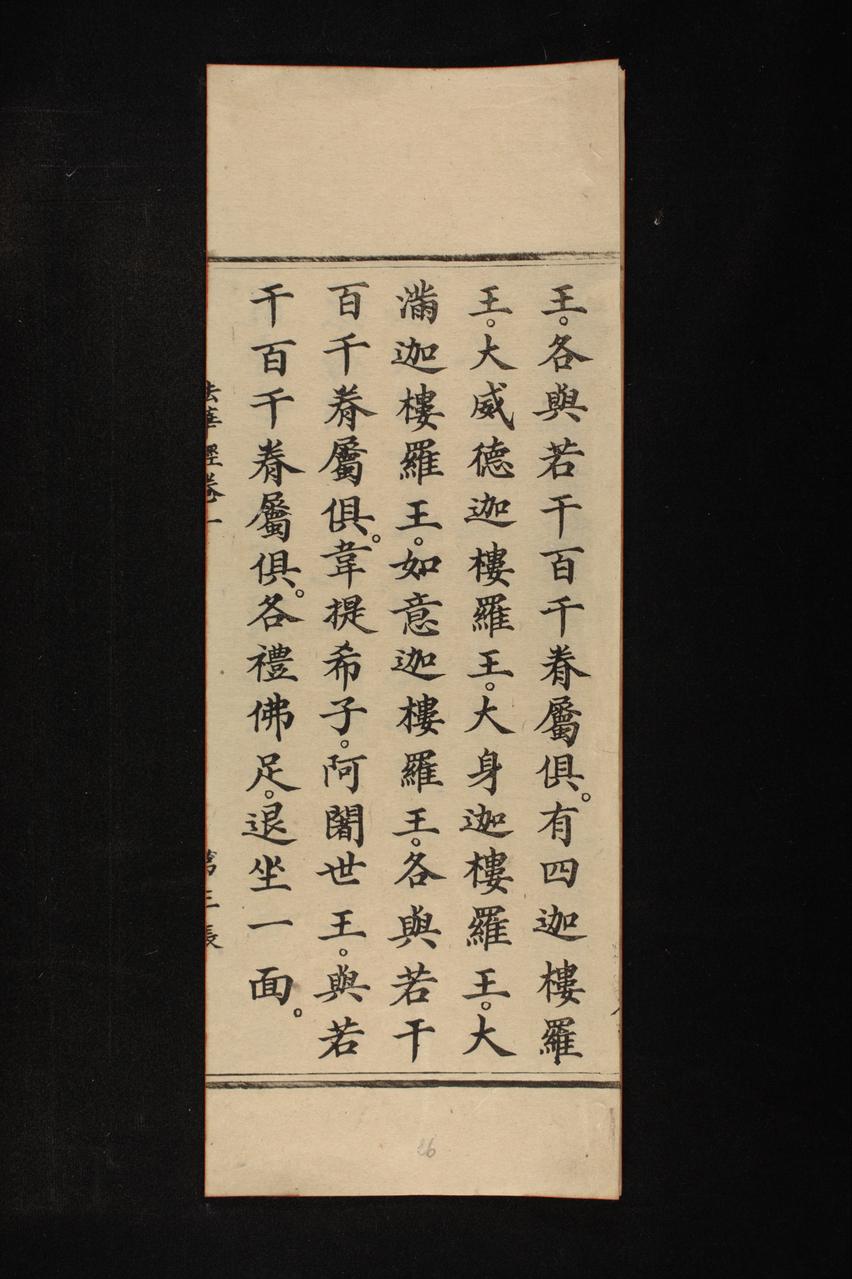 王。各與若干百千眷屬俱。有四迦樓羅
王。大威德迦樓羅王。大身迦樓羅王。大
滿迦樓羅王。如意迦樓羅王。各與若干
百千眷屬俱。韋提希子。阿闍世王。與若
干百千眷屬俱。各禮佛足。退坐一面。
法華經卷一
第三張
26